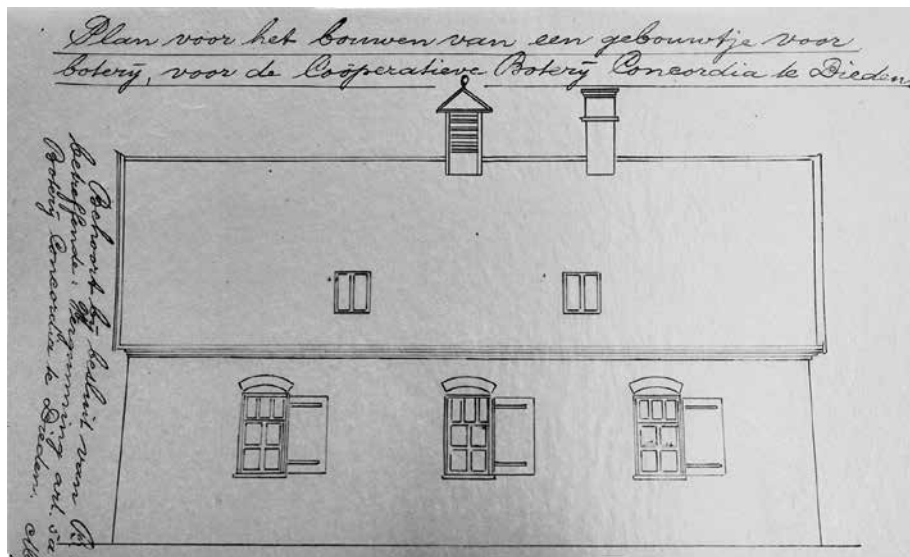 Plan voor het bouwen van een gebouwtje voor
boterij, voor de Coöperatieve Boterij Concordia te Dieden,
Behoort bij besluit van
betreffende: Vergunning art. 5a
Boterij Concordia te Dieden.